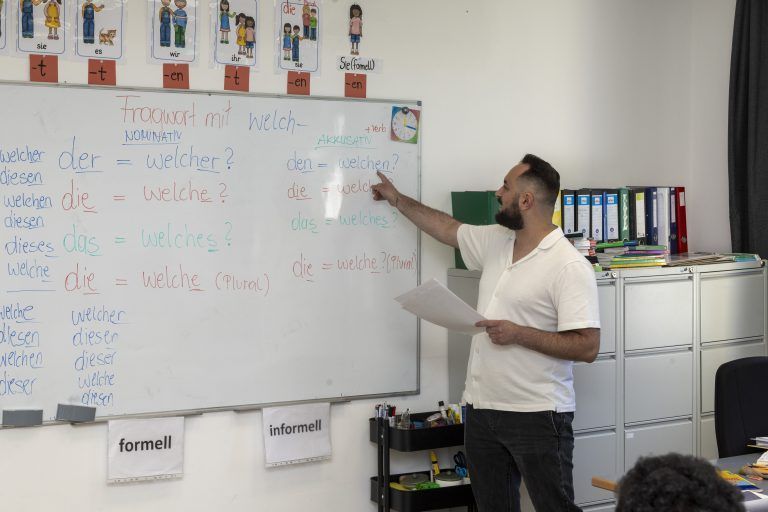 sie
es
wir
ihr
die
sie
Sie (formell)
-t
-t
-en
-t
-en
-en
Fragwort mit welch-
NOMINATIV
+verb
AKKUSATIV
welcher
diesen
welchen
diesen
dieses
welche
der = welcher?
die = welche?
das = welches?
die = welche (Plural)
den = welchen?
die = welch
das = welches?
die = welche? (Plural)
welche
diesen
welchen
dieser
welcher
diesen
dieser
welche
diesen
formell
informell